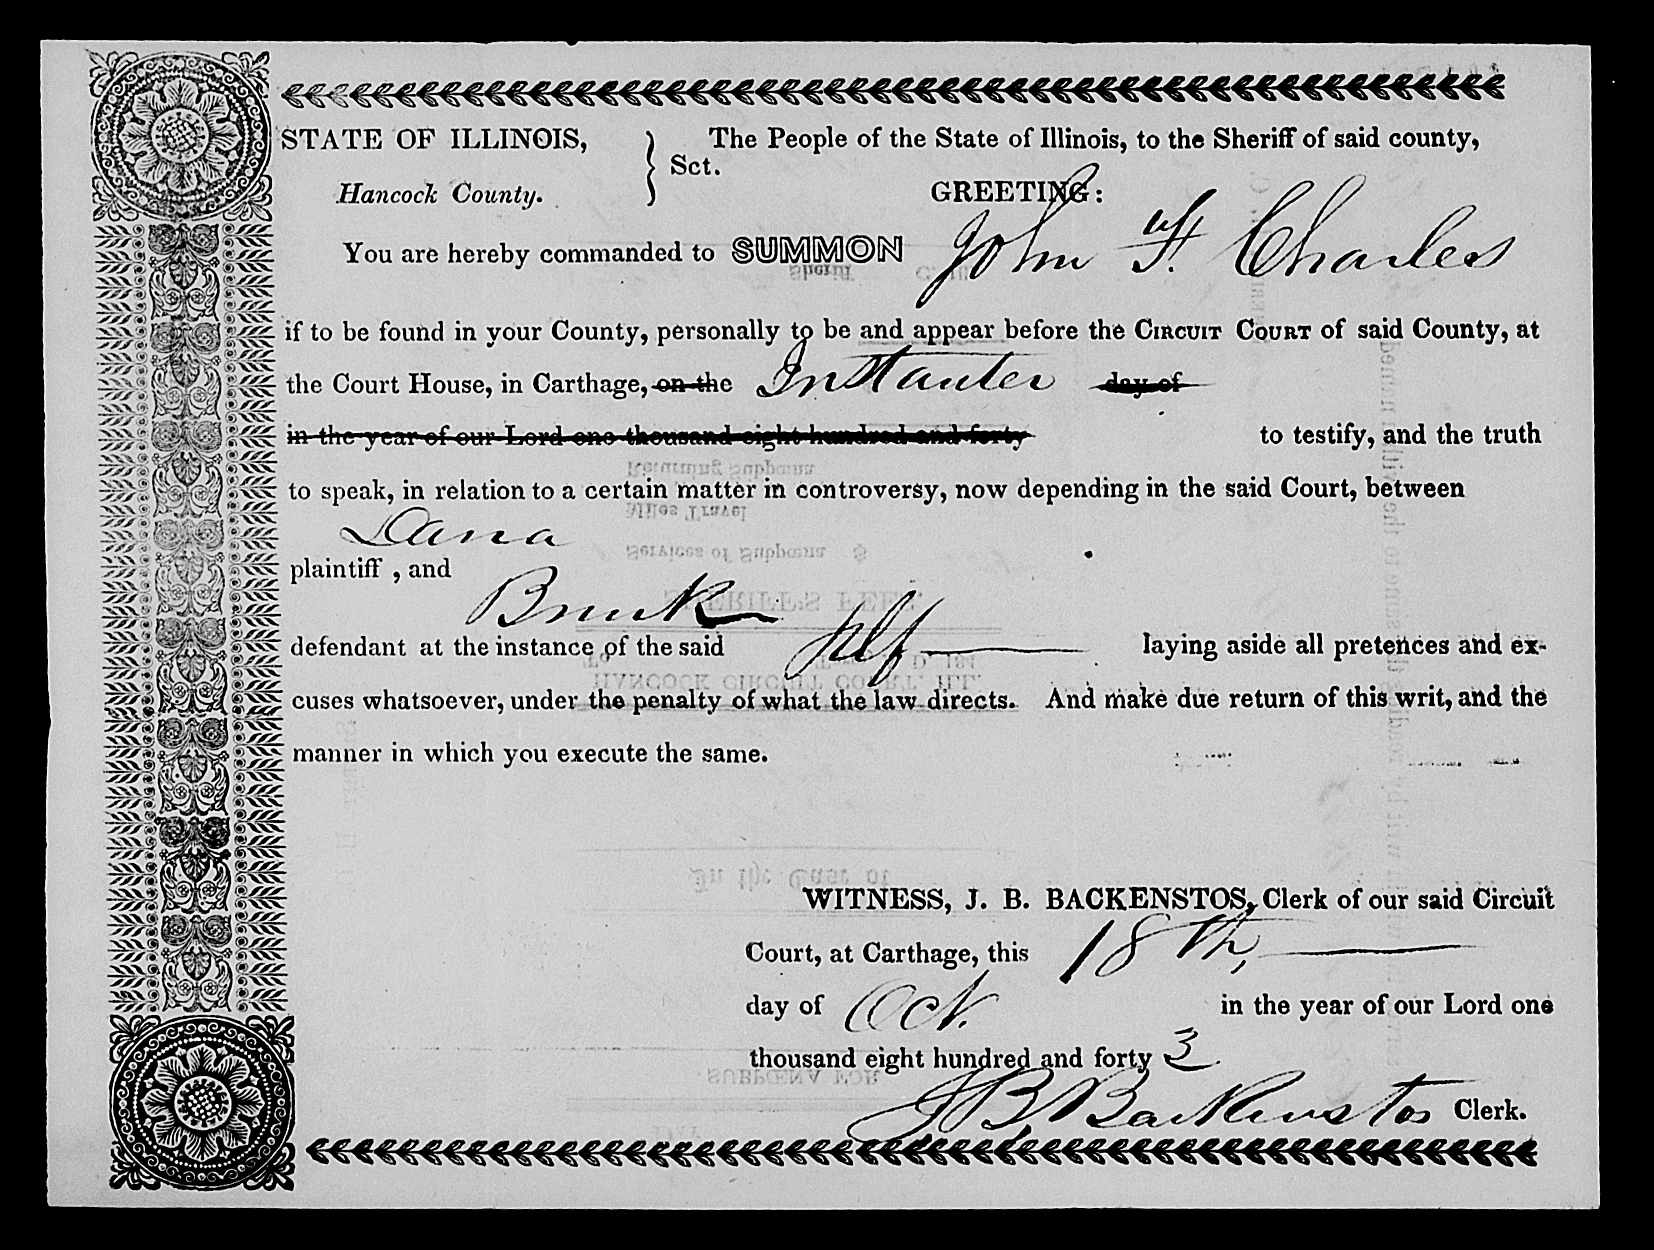 STATE OF ILLINOIS, } Sct. The People of the State of Illinois, to the Sheriff of said county,
Hancock County. GREETING:
You are hereby commanded to SUMMON John F. Charles
if to be found in your County, personally to be and appear before the CIRCUIT COURT of said County, at
the Court House, in Carthage, on the Instanter day of
in the year of our Lord one thousand eight hundred and forty to testify, and the truth
to speak, in relation to a certain matter in controversy, now depending in the said Court, between
Dana
plaintiff , and
Brink
defendant at the instance of the said Plf laying aside all pretences and ex-
cuses whatsoever, under the penalty of what the law directs. And make due return of this writ, and the
manner in which you execute the same.
WITNESS, J. B. BACKENSTOS, Clerk of our said Circuit
Court, at Carthage, this 18th,
day of Oct. in the year of our Lord one
thousand eight hundred and forty 3
J B Backenstos Clerk.